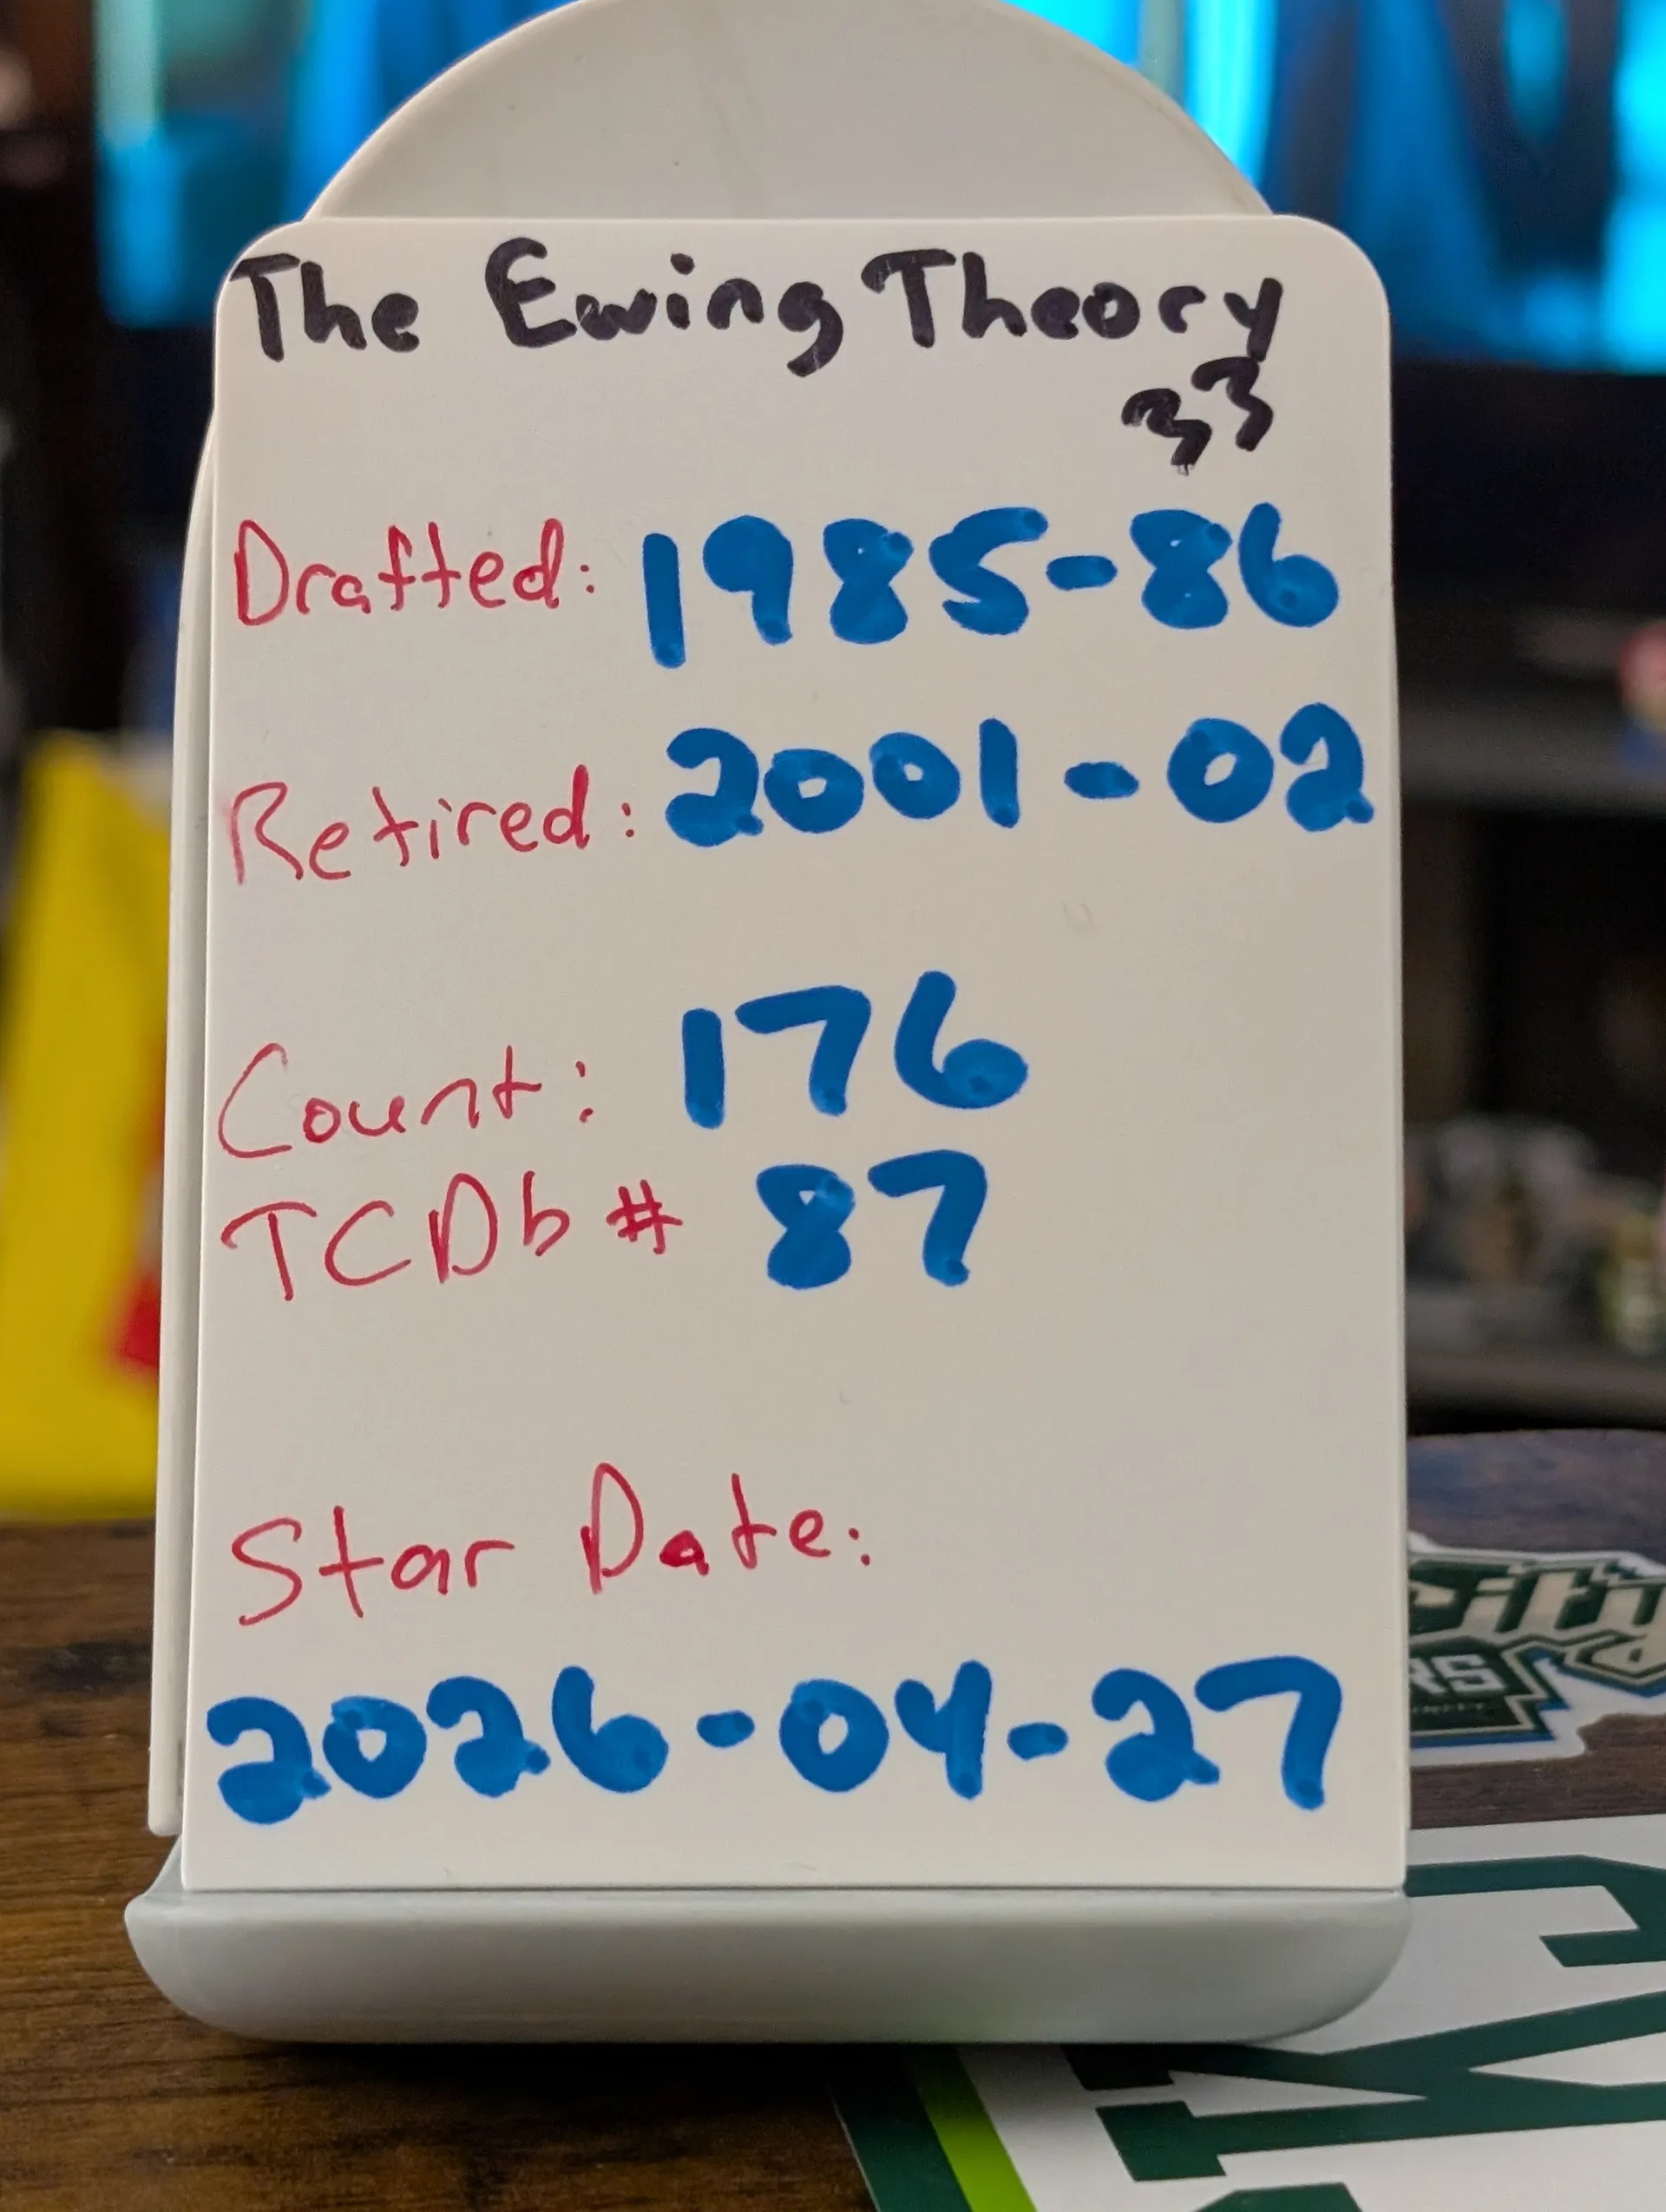 The Ewing Theory
33
Drafted: 1985-86
Retired: 2001-02
Count: 176
TCDb # 87
Star Date:
2026-04-27
City
RS